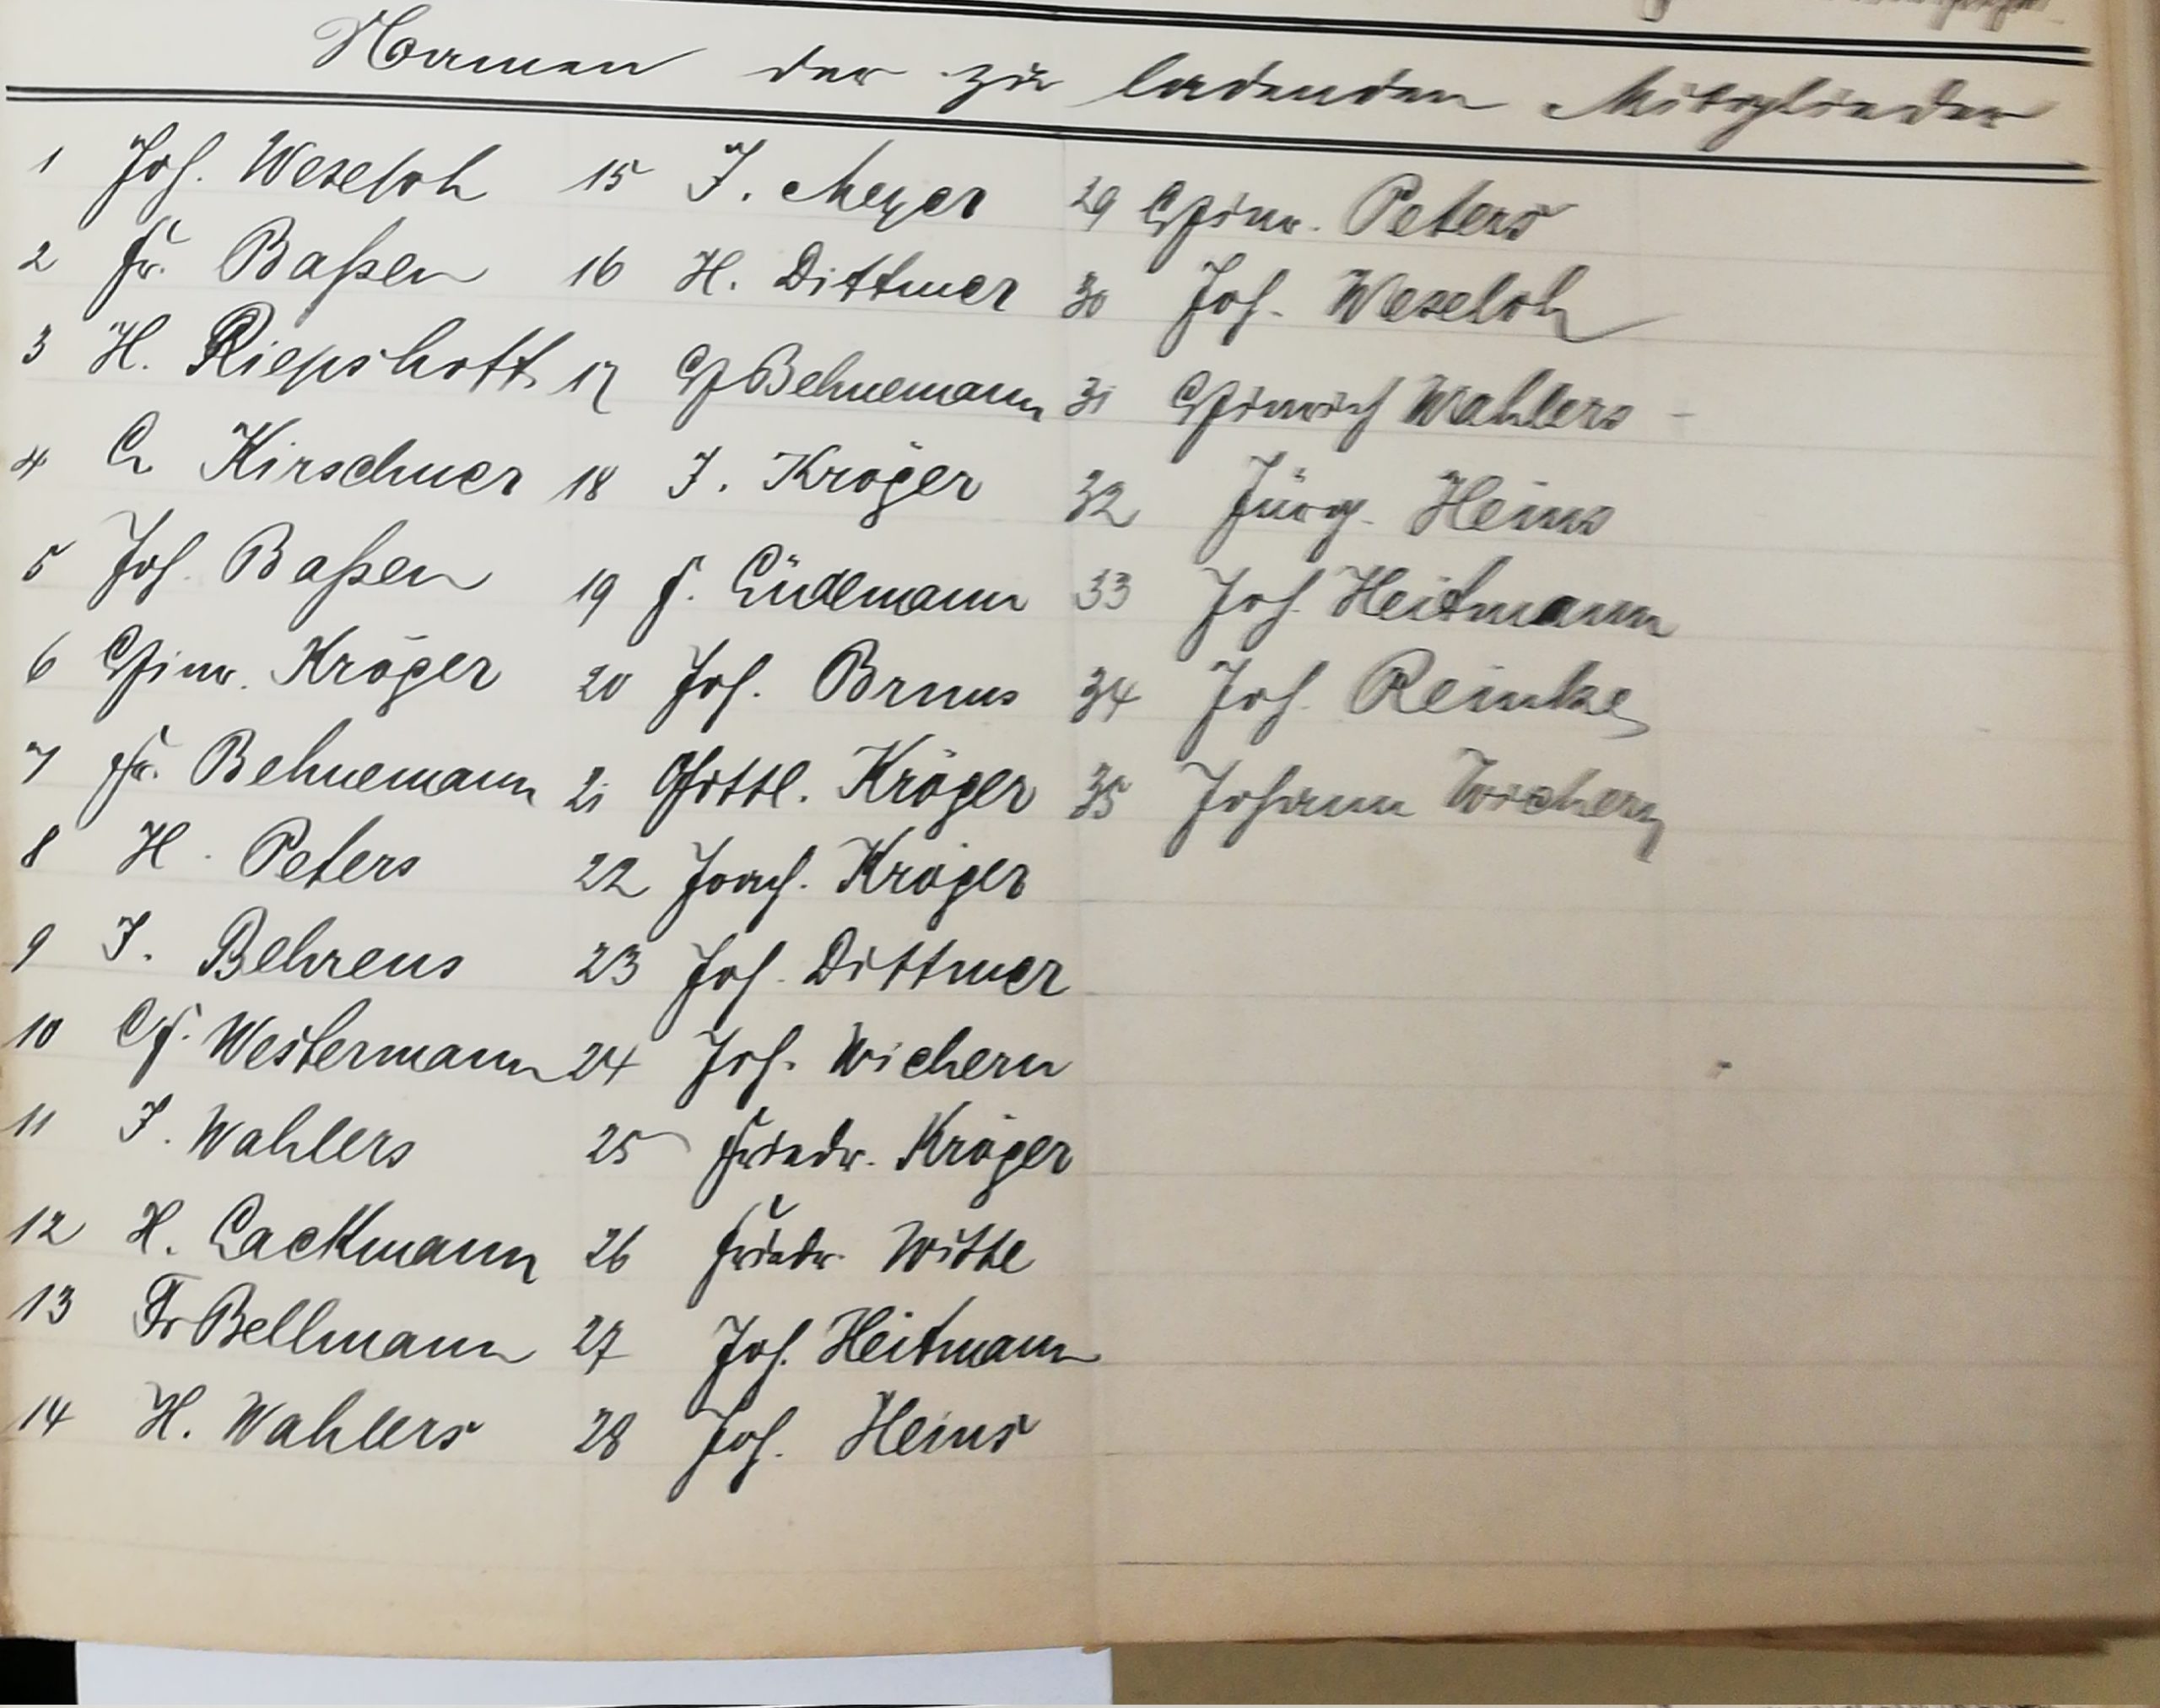 Namen der zu ladenden Mitglieder
1 Joh. Weseloh
2 Fr. Baßen
3 H. Riepshoff
4 C. Kirschner
5 Joh. Baßen
6 Hinr. Kröger
7 Fr. Behnemann
8 H. Peters
9 J. Behrens
10 Westermann
11 J. Wahlers
12 H. Lackmann
13 Fr Bellmann
14 H. Wahlers
15 J. Meyer
16 H. Dittmer
17 H Behnemann
18 J. Kröger
19 F. Lüdemann
20 Joh. Bruns
21 Gottl. Kröger
22 Joach. Kröger
23 Joh. Dittmer
24 Joh. Wichern
25 Friedr. Kröger
26 Friedr. Witte
27 Joh. Heitmann
28 Joh. Heins
29 Hinr. Peters
30 Joh. Weseloh
31 Hinrich Wahlers
32 Jürg. Heins
33 Joh. Heitmann
34 Joh. Reinke
35 Johann Wichern